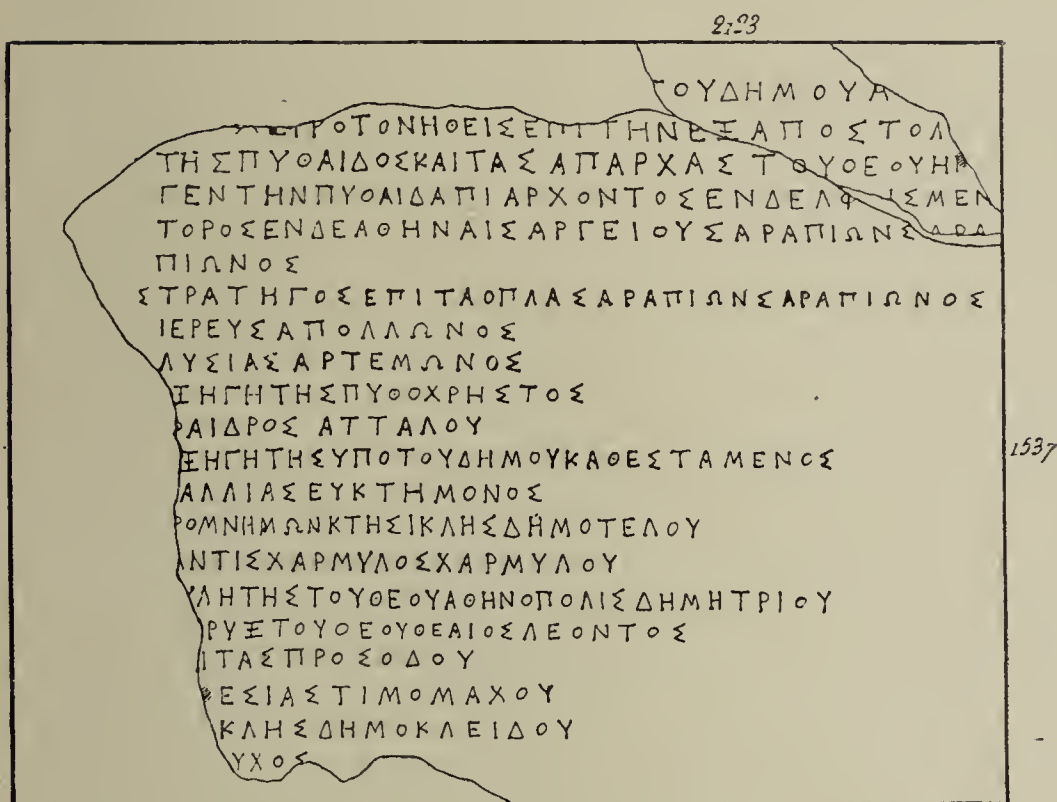 2123
ΤΟΥΔΗΜΟΥΑ
ΕΙΡΟΤΟΝΗΘΕΙΣΕΠΙΤΗΝΕΞΑΠΟΣΤΟΛ
ΤΗΣΠΥΘΑΙΔΟΣΚΑΙΤΑΣΑΠΑΡΧΑΣΤΟΥΘΕΟΥΗ
ΓΕΝΤΗΝΠΥΘΑΙΔΑΠΙΑΡΧΟΝΤΟΣΕΝΔΕΛΦΙΣΜΕΝ
ΤΟΡΟΣΕΝΔΕΑΘΗΝΑΙΣΑΡΓΕΙΟΥΣΑΡΑΠΙΩΝΣΑΡΑ
ΠΙΩΝΟΣ
ΣΤΡΑΤΗΓΟΣΕΠΙΤΑΟΠΛΑΣΑΡΑΠΙΩΝΣΑΡΑΠΙΩΝΟΣ
ΙΕΡΕΥΣΑΠΟΛΛΩΝΟΣ
ΛΥΣΙΑΣΑΡΤΕΜΩΝΟΣ
ΞΗΓΗΤΗΣΠΥΘΟΧΡΗΣΤΟΣ
ΦΑΙΔΡΟΣ ΑΤΤΑΛΟΥ
ΕΞΗΓΗΤΗΣΥΠΟΤΟΥΔΗΜΟΥΚΑΘΕΣΤΑΜΕΝΟΣ
ΑΛΛΙΑΣΕΥΚΤΗΜΟΝΟΣ
ΡΟΜΝΗΜΩΝΚΤΗΣΙΚΛΗΣΔΗΜΟΤΕΛΟΥ
ΑΝΤΙΣΧΑΡΜΥΛΟΣΧΑΡΜΥΛΟΥ
ΥΛΗΤΗΣΤΟΥΘΕΟΥΑΘΗΝΟΠΟΛΙΣΔΗΜΗΤΡΙΟΥ
ΡΥΞΤΟΥΘΕΟΥΘΕΑΙΟΣΛΕΟΝΤΟΣ
ΙΤΑΣΠΡΟΣΟΔΟΥ
ΕΣΙΑΣΤΙΜΟΜΑΧΟΥ
ΚΛΗΣΔΗΜΟΚΛΕΙΔΟΥ
ΥΧΟΣ
1537